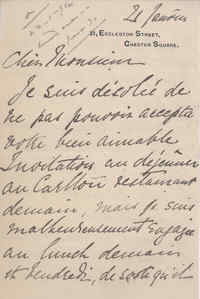 21 Janvier
21, ECCLESTON STREET,
CHESTER SQUARE.
Cher Monsieur
Je suis désolée de
ne pas pouvoir accepter
votre bien aimable
Invitation au déjeuner
au Carlton restaurant
demain, mais je suis
malheureusement engagée
au lunch demain
et vendredi, de sorte qu'il